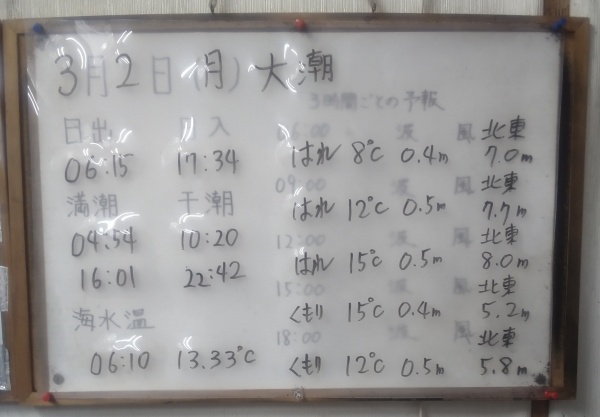 3月2日(月)大潮
3時間ごとの予報
日出 日入
06:15 17:34
満潮 干潮
04:54 10:20
16:01 22:42
海水温
06:10 13.33℃
06:00 波 風 北東
はれ 8℃ 0.4m 7.0m
09:00 波 風 北東
はれ 12℃ 0.5m 7.7m
12:00 波 風 北東
はれ 15℃ 0.5m 8.0m
15:00 波 風 北東
くもり 15℃ 0.4m 5.2m
18:00 波 風 北東
くもり 12℃ 0.5m 5.8m